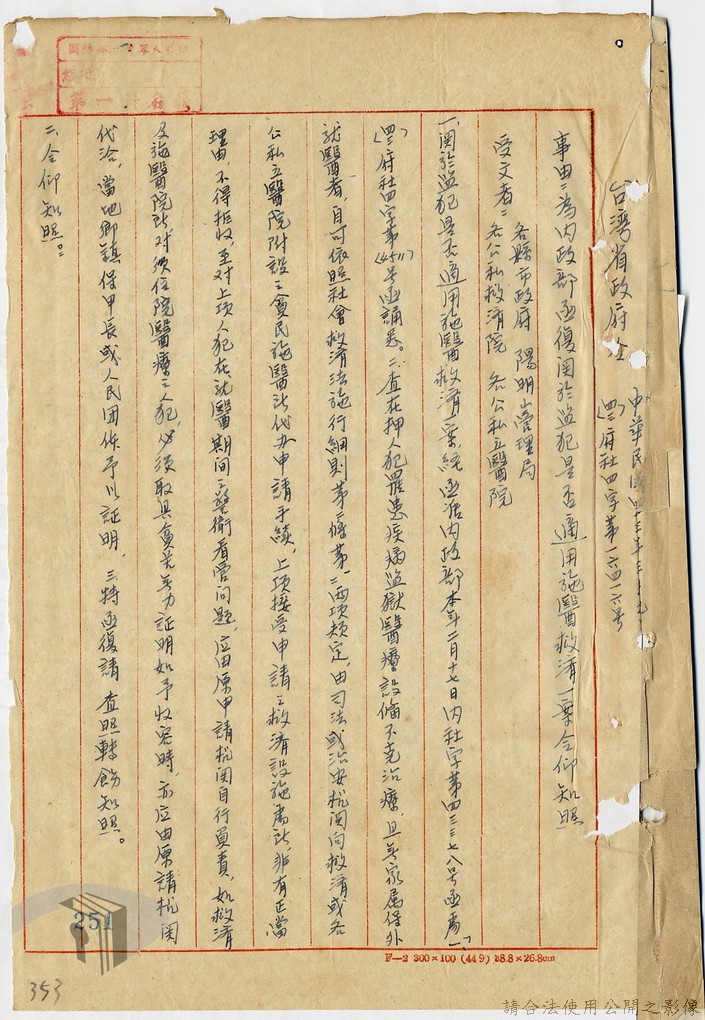 台湾省政府令
中華民國四十三年三
(四三)府社四字第一六四一六号
事由：為內政部函復関於监犯是否適用施醫救済一案令仰知照
受文者：各縣市政府 陽明山管理局
各公私救済院 各公私立醫院
一、関於监犯是否適用施醫救済一案経函准内政部本年二月十七日内社字第四三三七八号函為「一、
(四三)府社四字第(4511)号函誦悉。二、查在押人犯罹患疾病监獄醫療設俻不克治療，且無家属保外
就醫者，自可依照社會救済法施行細則第二條第一、二両項規定，由司法或治安机関向救済或各
公私立醫院附設之貧民施醫所代办申請手續，上項接受申請之救済設施為所，非有正當
理由，不得拒收，至对上項人犯在就醫期间之警衛看管问题，应由原申請机関自行負責，如救済
及施醫醫院所对须住院醫療之人犯，必须取具貧苦無力証明如予收容時，亦应由原請机関
代洽，當地鄉鎮保甲長或人民团体予以証明，三、特函復請 查照轉飭知照。
二、令仰知照。
251
353
F—2 300×100 (449) 38.8×26.8cm
請合法使用公開之影像